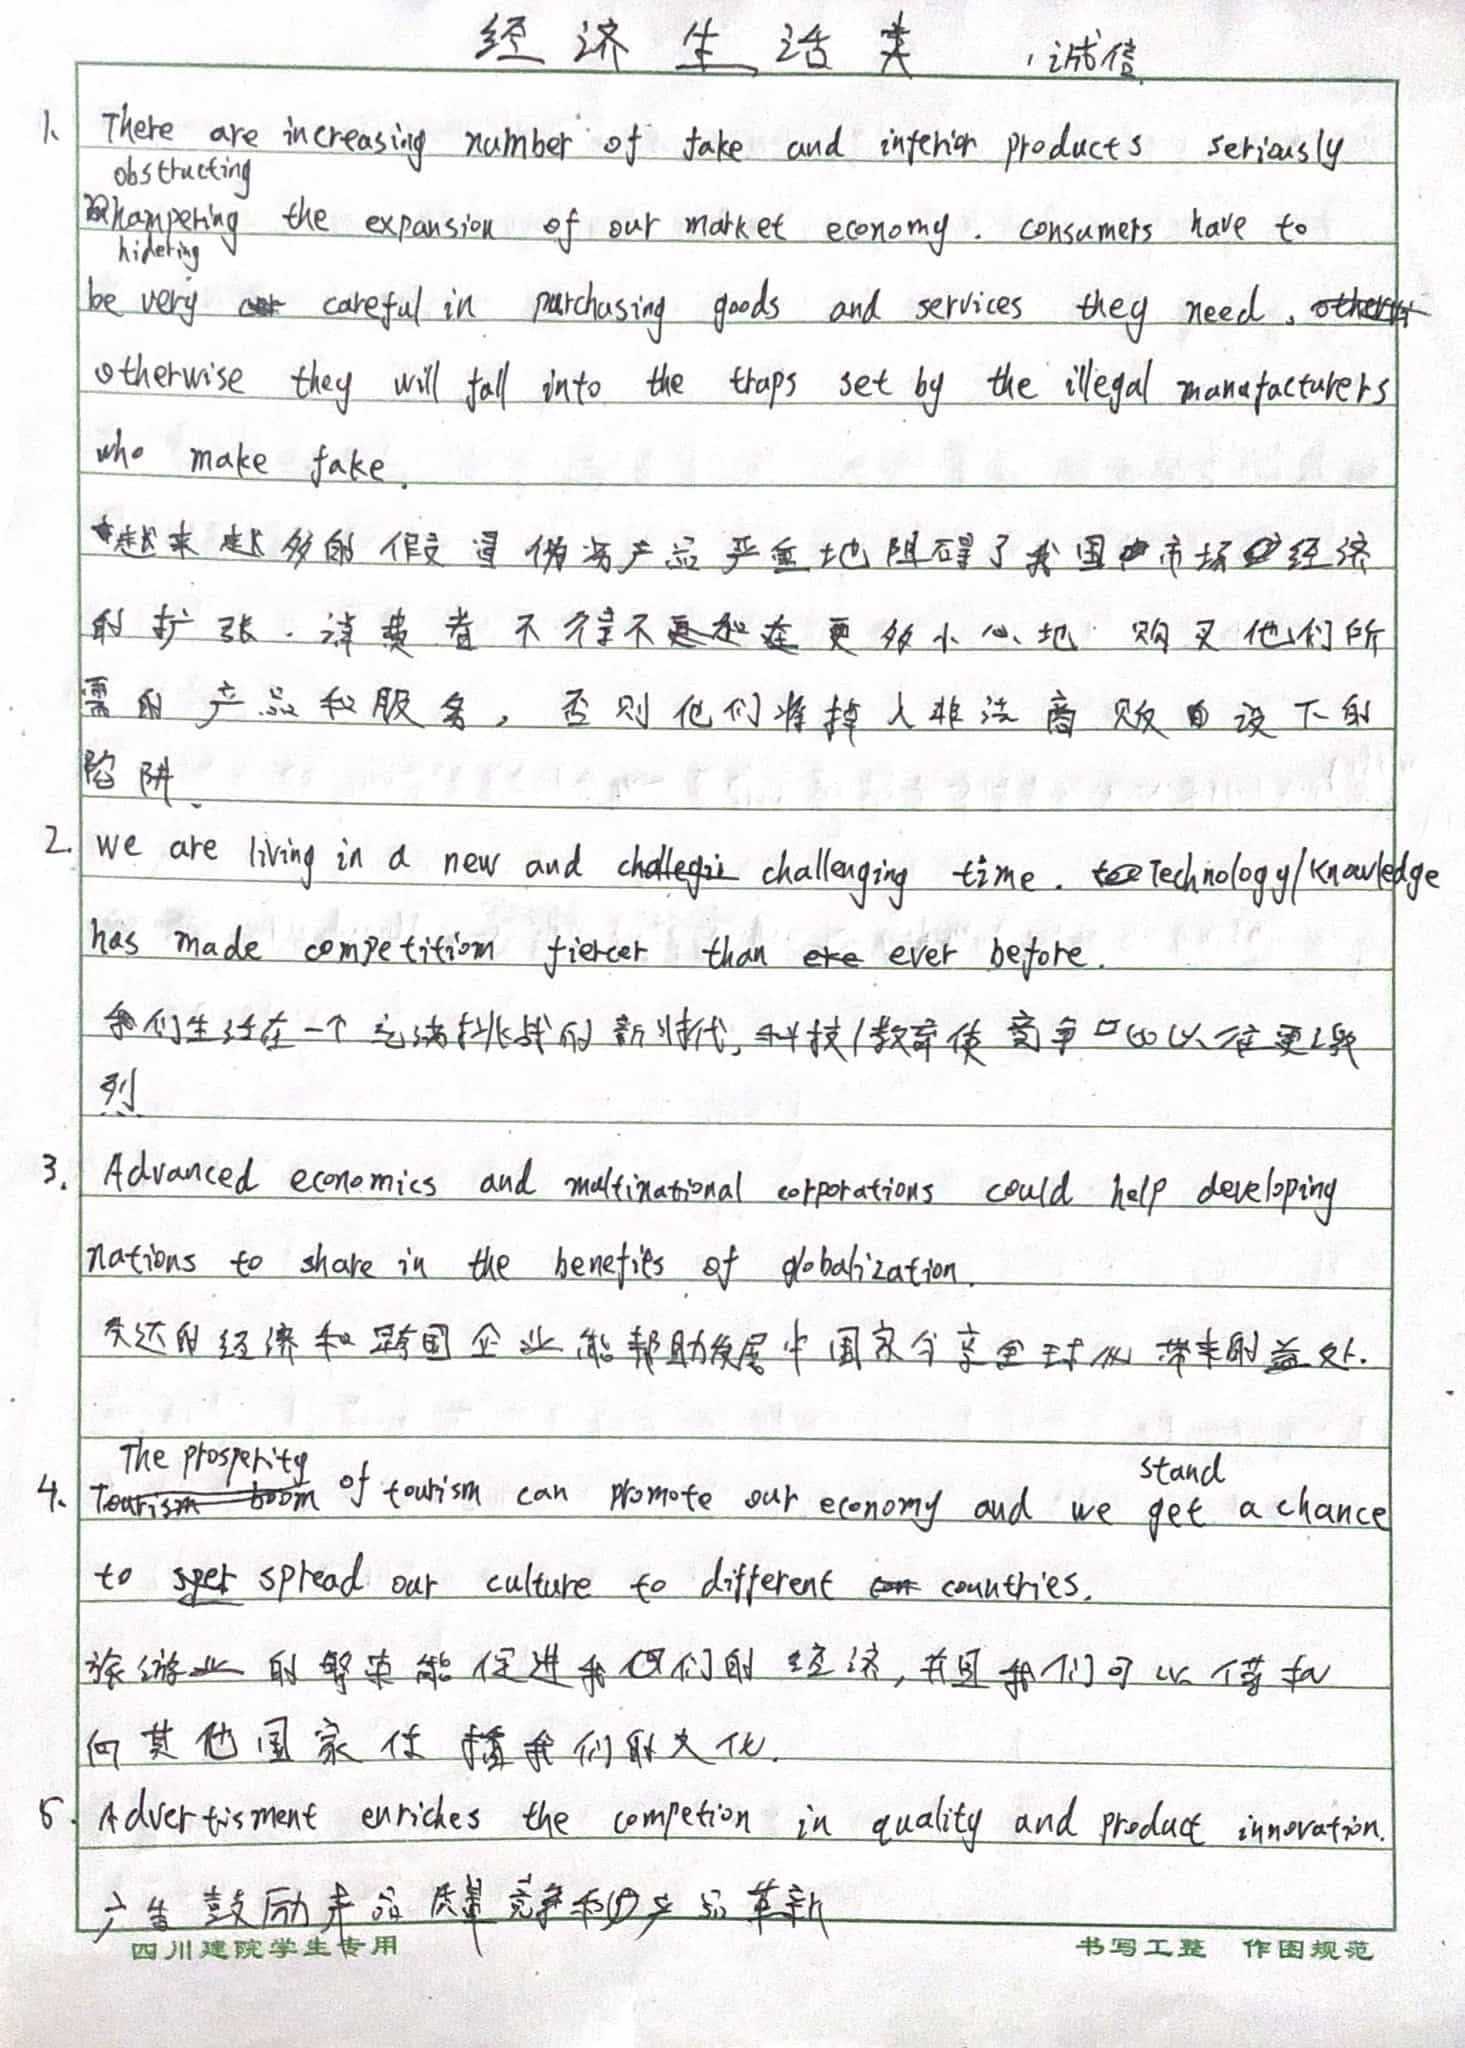 经济生活类 , 诚信
1. There are increasing number of fake and inferior products seriously
obstructing
hampering the expansion of our market economy. consumers have to
hidering
be very careful in purchasing goods and services they need,
otherwise they will fall into the traps set by the illegal manufacturers
who make fake.
越来越多的假冒伪劣产品严重地阻碍了我国市场经济
的扩张. 消费者不得不更多小心地购买他们所
需的产品和服务, 否则他们将掉入非法商贩设下的
陷阱.
2. we are living in a new and challenging time. Technology/knowledge
has made competition fiercer than ever before.
我们生活在一个充满挑战的新时代, 科技/教育使竞争比以往更激
烈
3. Advanced economics and multinational corporations could help developing
nations to share in the benefits of globalization.
发达的经济和跨国企业能帮助发展中国家分享全球化带来的益处.
The prosperity stand
4. of tourism can promote our economy and we get a chance
to spread our culture to different countries.
旅游业的繁荣能促进我们的经济, 并且我们可以借机
向其他国家传播我们的文化.
5. Advertisment enriches the competion in quality and product innovation.
广告鼓励产品质量竞争和产品革新
四川建院学生专用 书写工整 作图规范